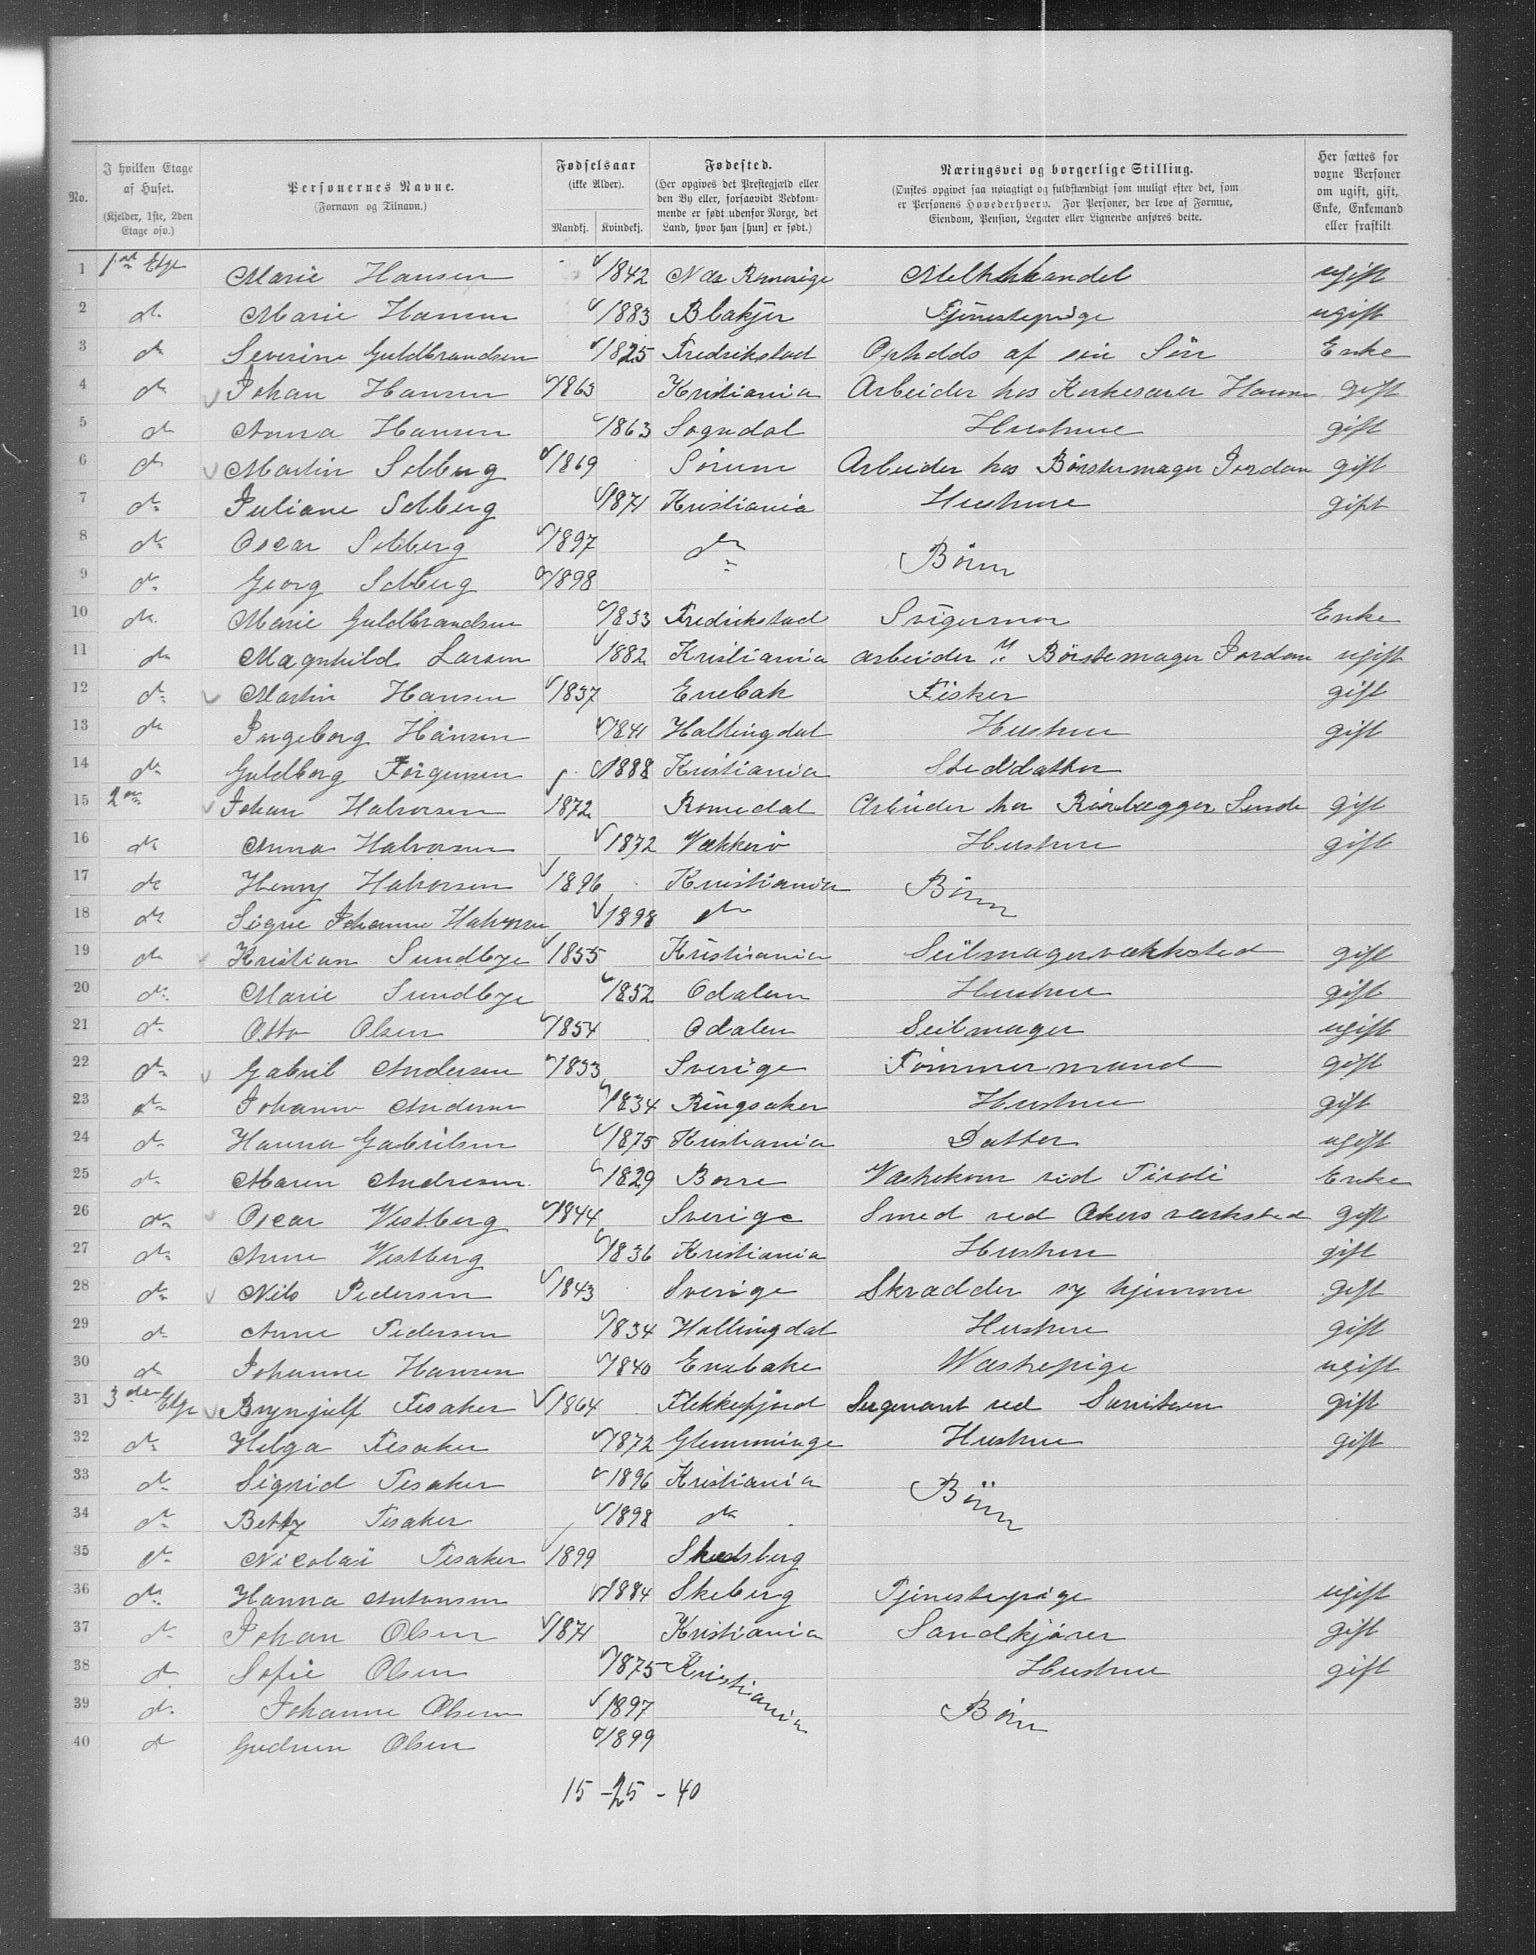 No.
I hvilken Etage af Huset.
(Kjelder, 1ste, 2den Etage osv.)
Personernes Navne.
(Fornavn og Tilnavn.)
Fødselsaar
(ikke Alder).
Mandkj. Kvindekj.
Fødested.
(Her opgives det Prestegjæld eller den By eller, forsaavidt Vedkommende er født udenfor Norge, det Land, hvor han [hun] er født.)
Næringsvei og borgerlige Stilling.
(Ønskes opgivet saa nøiagtigt og fuldstændigt som muligt efter det, som er Personens Hovederhverv. For Personer, der leve af Formue, Eiendom, Pension, Legater eller Lignende anføres deite.)
Her sættes for voxne Personer om ugift, gift, Enke, Enkemand eller fraskilt.
1 1ste Etge Marie Hansen 1842 Næs Romerige Melkehandel ugift
2 do Marie Hansen 1883 Blakjer Tjenestepige ugift
3 do Severine Guldbrandsen 1825 Fredrikstad Opholds af sin Søn Enke
4 do Johan Hansen 1863 Kristiania Arbeider hos Korkeskærer Hansen gift
5 do Anna Hansen 1863 Sogndal Hustrue gift
6 do Martin Solberg 1869 Sørum Arbeider hos Børstemager Jordan gift
7 do Juliane Solberg 1871 Kristiania Hustrue gift
8 do Oscar Solberg 1897 do Børn
9 do Georg Solberg 1898
10 do Marie Guldbrandsen 1833 Fredrikstad Svigermor Enke
11 do Magnhild Larsen 1882 Kristiania arbeider " Børstemager Jordan ugift
12 do Martin Hansen 1837 Enebak Fisker gift
13 do Ingeborg Hansen 1841 Hallingdal Hustrue gift
14 do Guldborg Jørgensen 1888 Kristiania Steddatter
15 2en Johan Halvorsen 1872 Romedal Arbeider hos Rørlægger Sunde gift
16 do Anna Halvorsen 1872 Vækkerø Hustrue gift
17 do Henry Halvorsen 1896 Kristiania Børn
18 do Signe Johanne Halvorsen 1898 do
19 do Kristian Sundbye 1855 Kristiania Seilmagerværksted gift
20 do Marie Sundbye 1852 Odalen Hustrue gift
21 do Otto Olsen 1854 Odalen Seilmager ugift
22 do Gabril Andersen 1833 Sverige Tømmermand gift
23 do Johanne Andersen 1834 Ringsaker Hustrue gift
24 do Hanna Gabrilsen 1875 Kristiania Datter ugift
25 do Maren Andresen 1829 Borre Vaskekone ved Tivoli Enke
26 do Oscar Vestberg 1844 Sverige Smed ved Akers værksted gift
27 do Anne Vestberg 1836 Kristiania Hustrue gift
28 do Nils Pedersen 1843 Sverige Skrædder sy hjemme gift
29 do Anne Pedersen 1834 Hallingdal Hustrue gift
30 do Johanne Hansen 1840 Enebake Vaskepige ugift
31 3die Etge Brynjulf Tesaker 1864 Flekkefjord Sergeant ved Saniteten gift
32 do Helga Tesaker 1872 Glemminge Hustrue gift
33 do Sigrid Tesaker 1896 Kristiania Børn
34 do Betty Tesaker 1898 do
35 do Nicolai Tesaker 1899 Skedsberg
36 do Hanna Antonsen 1884 Skeberg Tjenestepige ugift
37 do Johan Olsen 1871 Kristiania Sandkjører gift
38 do Sofie Olsen 1875 Kristiania Hustrue gift
39 do Johanne Olsen 1897 Børn
40 do Gudrun Olsen 1899
15 - 25 - 40